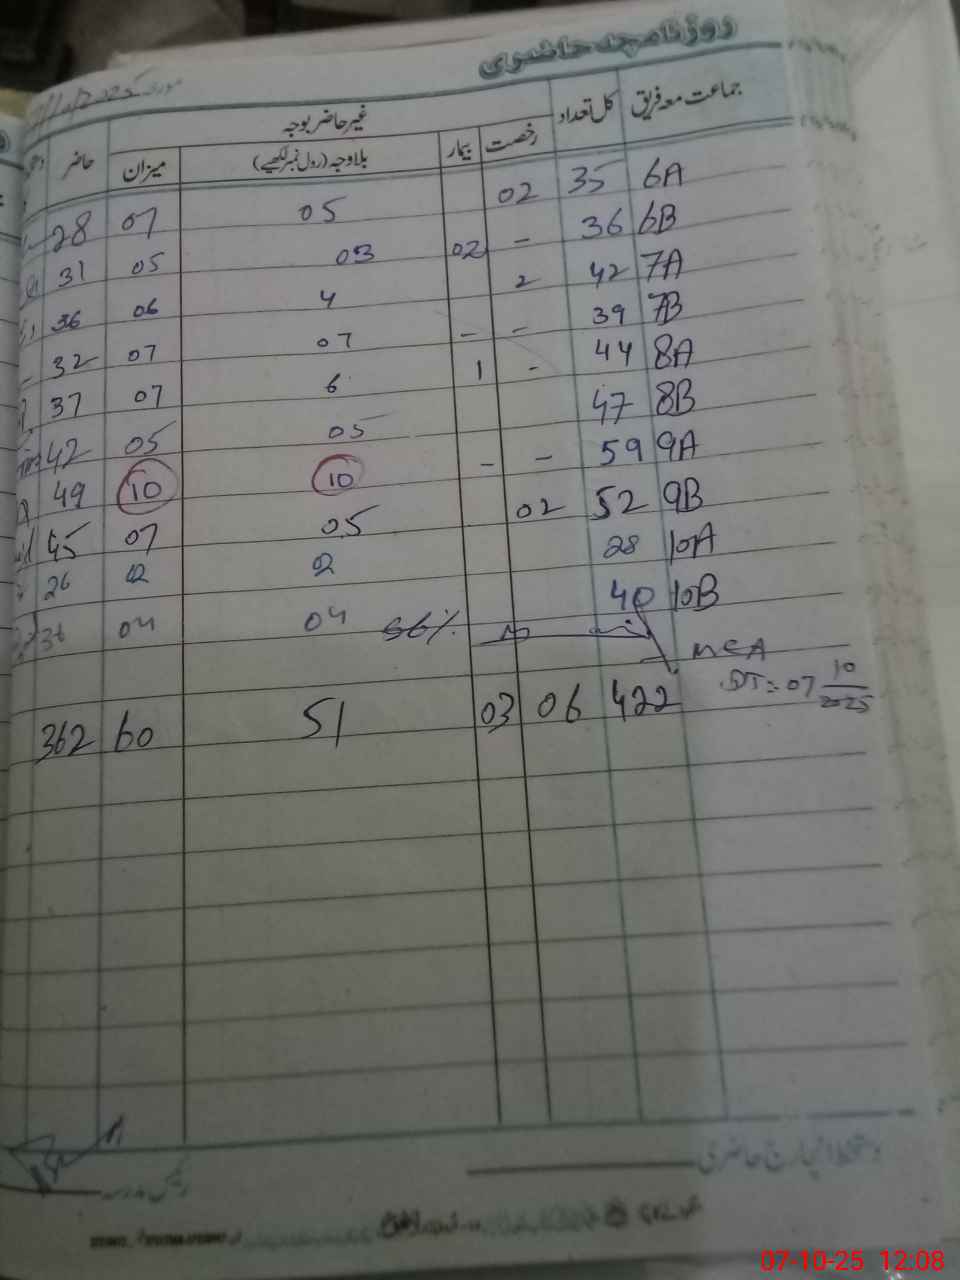 روزنامچہ حاضری
مورخہ 7/10/2025
جماعت معہ فریق کل تعداد غیر حاضر بوجہ حاضر
رخصت بیمار بلاوجہ (رول نمبر لکھیے) میزان
6A 35 02 05 07 28
6B 36 - 02 03 05 31
7A 42 2 4 06 36
7B 39 - - 07 07 32
8A 44 - 1 6 07 37
8B 47 05 05 42
9A 59 - - 10 10 49
9B 52 02 05 07 45
10A 28 02 02 26
10B 40 04 04 36
86%
MEA
DT:- 07 10/2025
422 06 03 51 60 362
دستخط انچارج حاضری
رئیس مدرسہ
07-10-25 12:08